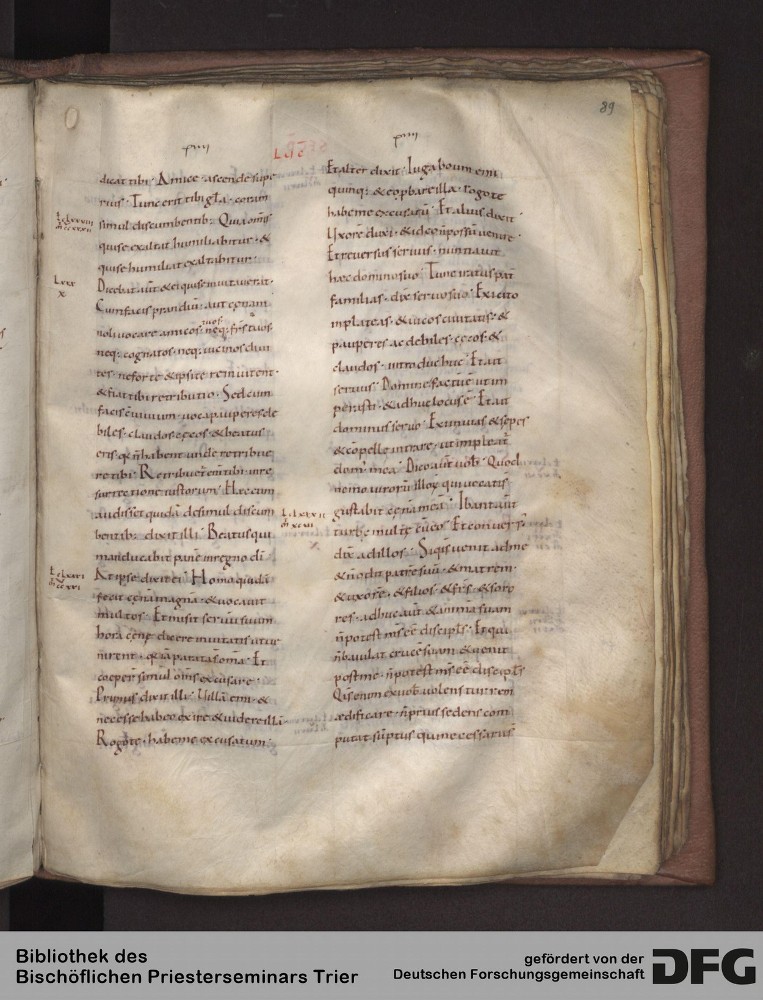 89
dicat tibi · Amice · ascende supe
rius · Tunc erit tibi gla · coram
simul discumbentib: Quia omis
qui se exaltat humiliabitur · &
qui se humiliat exaltabitur ·
Dicebat aut & ei qui se inuitauerat ·
Cum facis prandiu aut cenam
noli uocare amicos tuos · neq: frs tuos ·
neq: cognatos · neq: uicinos diui
tes · ne forte & ipsi te reinuitent ·
& fiat tibi retributio · Sed cum
facis conuiuium · uoca pauperes de
biles · claudos · cecos · & beatus
eris · q n habent unde retribue
re tibi · Retribuet eni tibi in re
surrectione iustorum · Hec cum
audisset quida de simul discum
bentib: dixit illi · Beatus qui
manducabit pane in regno di
At ipse dixit ei · Homo quida
fecit cena magna · & uocauit
multos · Et misit seruu suum
hora cene dicere inuitatis ut ue
nirent · quia parata s oma · Et
ceper simul oms excusare ·
Primus dixit illi · Uilla emi · &
necesse habeo exire & uidere illa ·
Rogo te · habe me excusatum ·
Et alter dixit · Iuga boum emi
quinq: & eo pbare illa · rogo te
habe me excusatu · Et alius dixit ·
Uxore duxi · & ideo n possu uenire ·
Et reuersus seruus · nuntiauit
hec domino suo · Tunc iratus pat
familias · dix seruo suo · Exi cito
in plateas · & uicos ciuitatis · &
pauperes ac debiles · cecos · &
claudos · introduc huc · Et ait
seruus · Domine factu e ut im
perasti · & adhuc locus e · Et ait
dominus seruo · Exi in uias & sepes
& copelle intrare · ut impleat
dom mea · Dico aut uob · Quod
nemo uiroru illoru qui uocati s
gustabit cena mea · Ibant aut
turbe multe cu eo · Et conuersus
dix ad illos · Si quis uenit ad me
& n odit patre suu · & matrem ·
& uxore · & filios · & frs · & soro
res · adhuc aut & anima suam
n potest ms ee discipls · Et qui
n baiulat cruce suam & uenit
post me · n potest ms ee discipls
Quis enim ex uob uolens turrem
ædificare · n prius sedens com
putat suptus qui necessarii s
Bibliothek des
Bischöflichen Priesterseminars Trier
gefördert von der
Deutschen Forschungsgemeinschaft
DFG